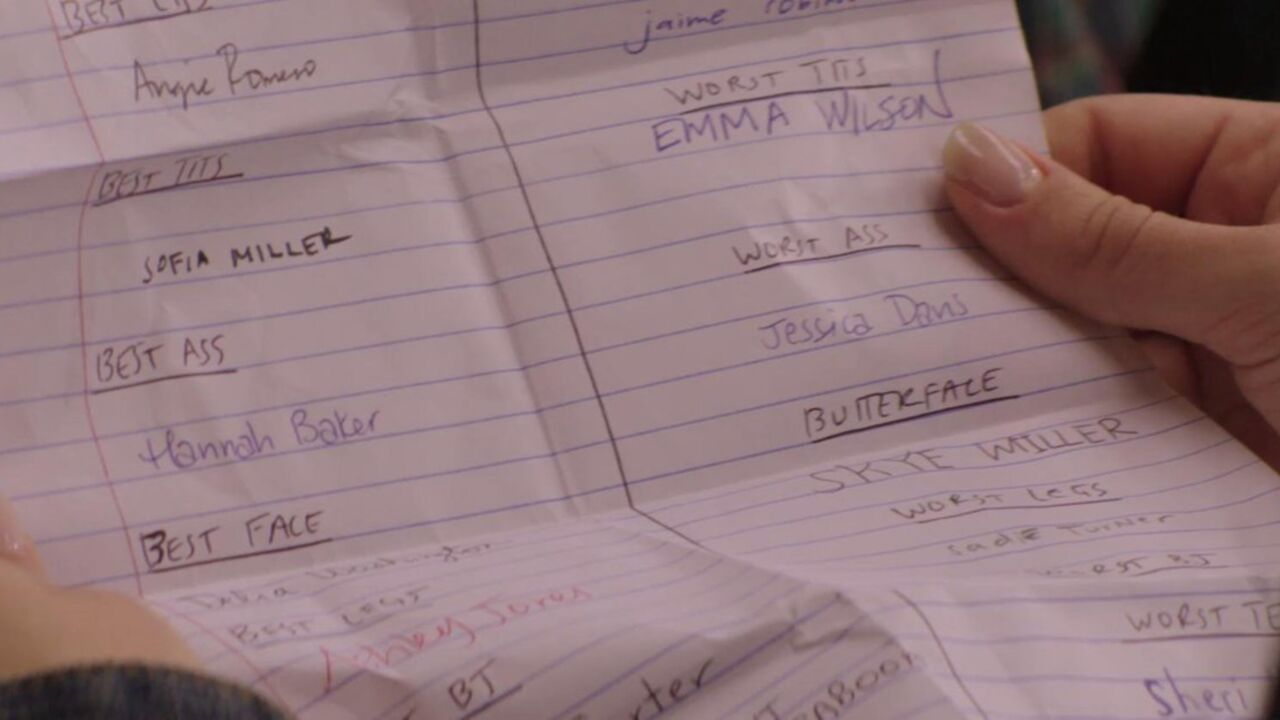 BEST LIPS
Angie Romero
BEST TITS
SOFIA MILLER
BEST ASS
Hannah Baker
BEST FACE
BEST LEGS
Ashley
BJ
jaime
WORST TITS
EMMA WILSON
WORST ASS
Jessica Davis
BUTTERFACE
SKYE MILLER
WORST LEGS
sadie Turner
WORST BJ
WORST TE
Sheri